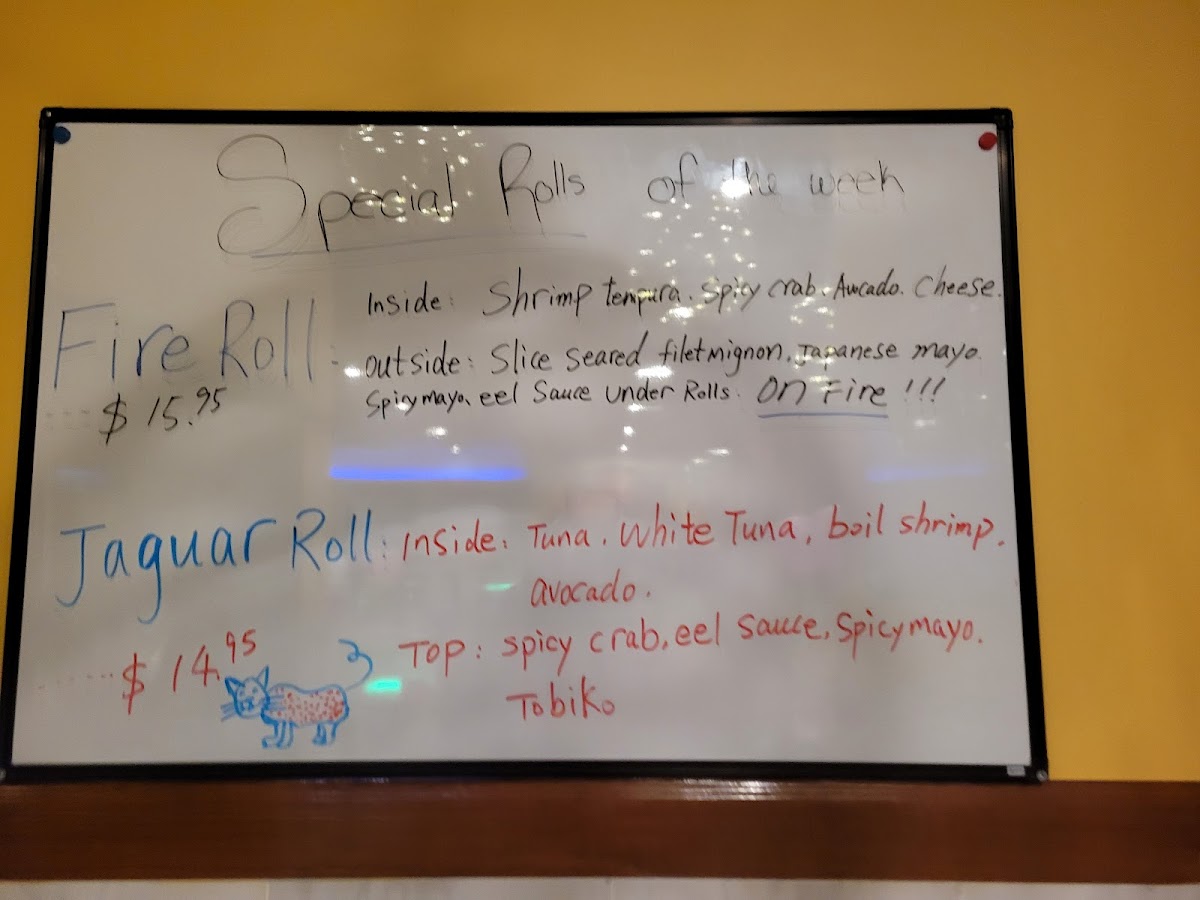 Special Rolls of the week
Fire Roll - Inside: Shrimp tempura. Spicy crab. Avocado. Cheese.
$15.95
outside: Slice Seared filet mignon. Japanese mayo.
Spicy mayo, eel Sauce under Rolls. ON Fire!!!
Jaguar Roll: Inside: Tuna. White Tuna, boil shrimp.
avocado.
$14.95
Top: spicy crab, eel sauce, Spicy mayo.
Tobiko